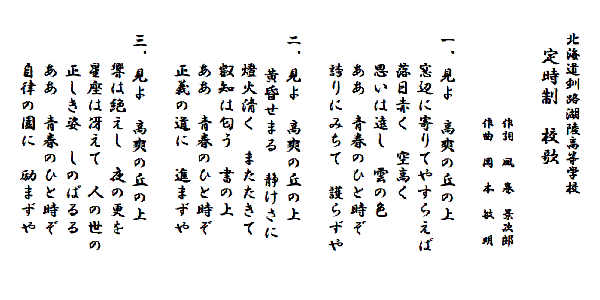 北海道釧路湖陵高等学校
定時制 校歌
作詞 風巻 景次郎
作曲 岡本 敏明
一、見よ 高爽の丘の上
窓辺に寄りてやすらえば
落日赤く 空高く
思いは遠し 雲の色
ああ 青春のひと時ぞ
誇りにみちて 護らずや
二、見よ 高爽の丘の上
黄昏せまる 静けさに
燈火清く またたきて
叡知は匂う 書の上
ああ 青春のひと時ぞ
正義の道に 進まずや
三、見よ 高爽の丘の上
響は絶えし 夜の更を
星座は冴えて 人の世の
正しき姿 しのばるる
ああ 青春のひと時ぞ
自律の園に 励まずや